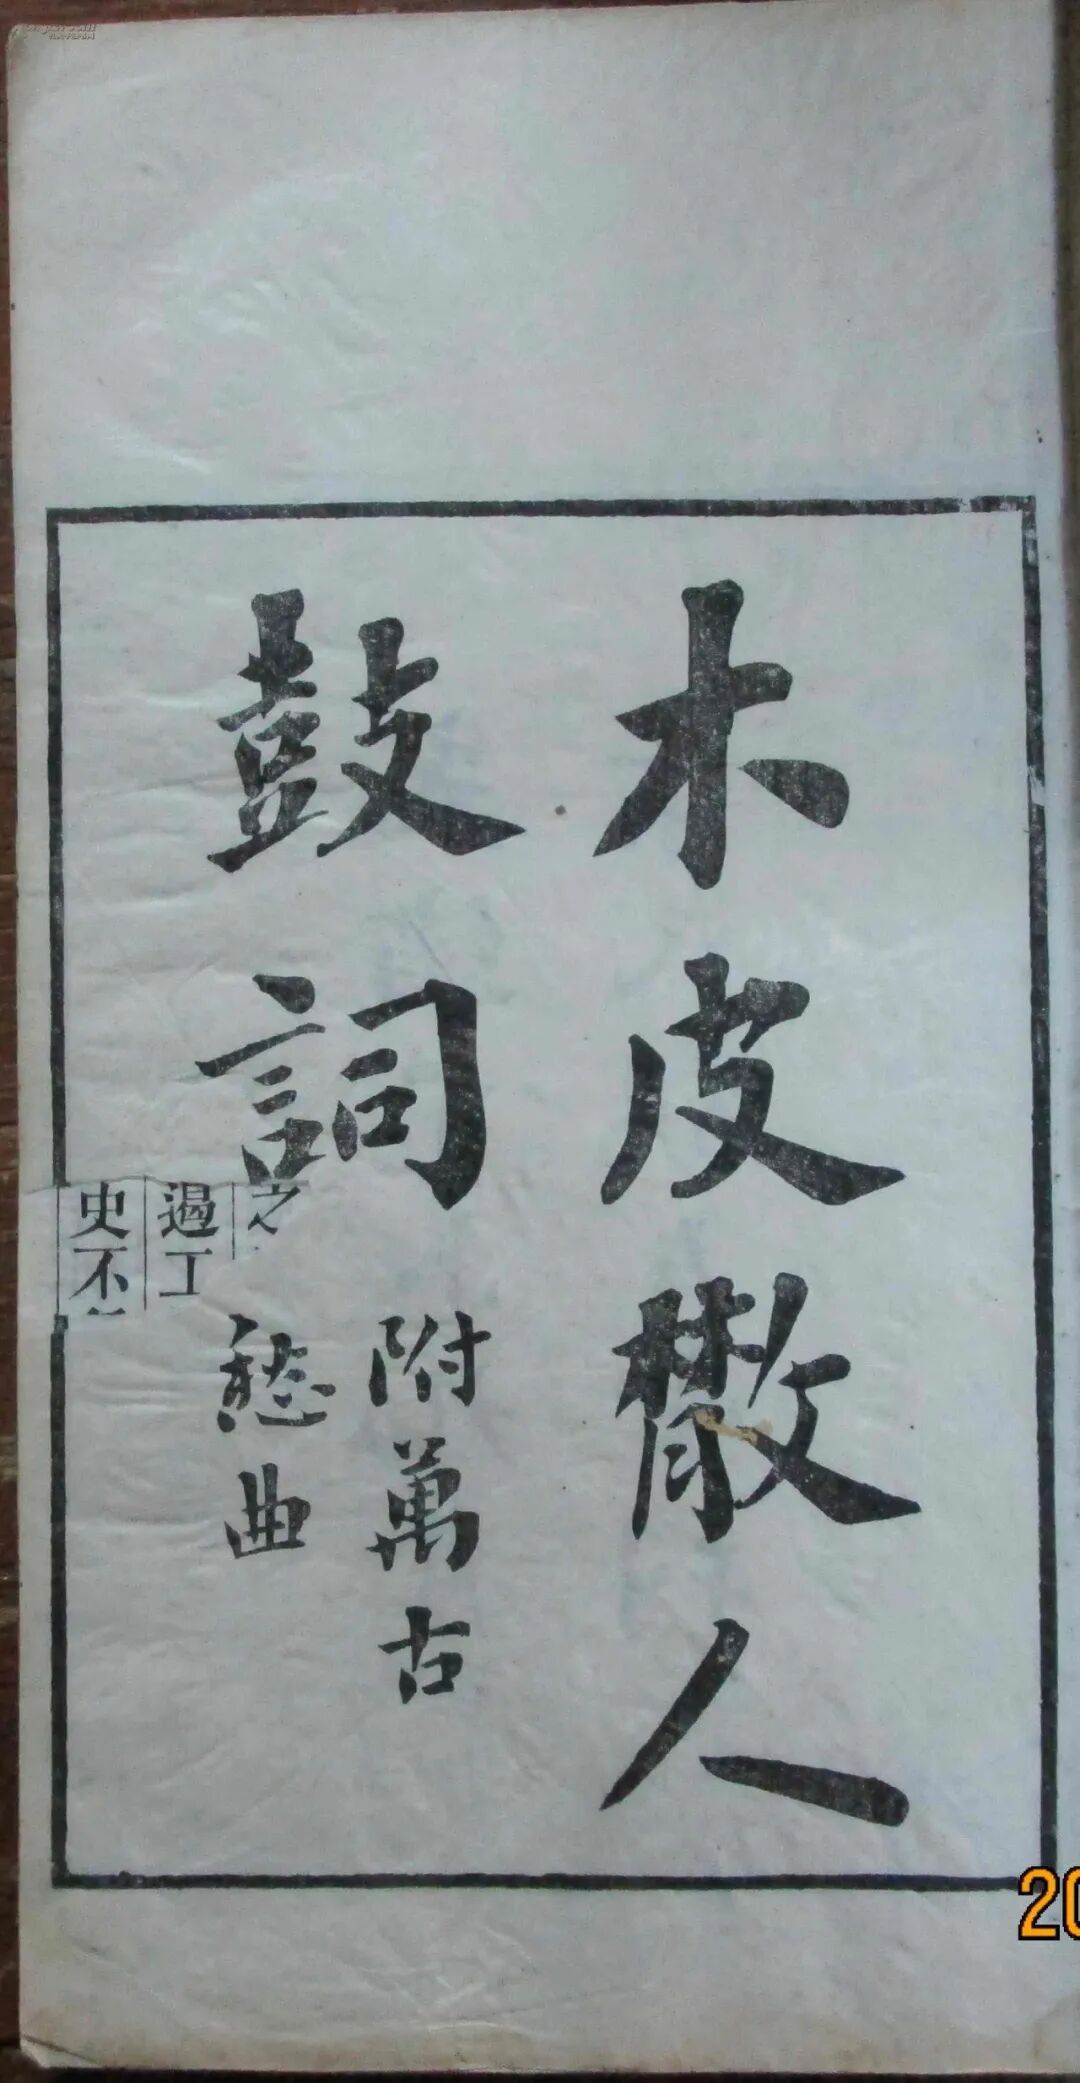 木皮散人
鼓詞
附萬古
愁曲
之
過工
史不
20